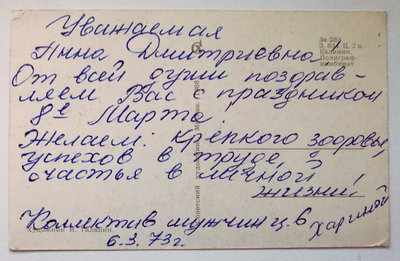 Уважаемая
Анна Дмитриевна
От всей души поздрав-
ляем Вас с праздником
8е Марта.
Желаем: крепкого здоровья,
успехов в труде, и
счастья в личной
жизни
Коллектив мужчин ц. 6
6.3.73г.
За-283
Ц. 2 к.
Калинин.
Полиграф-
комбинат.